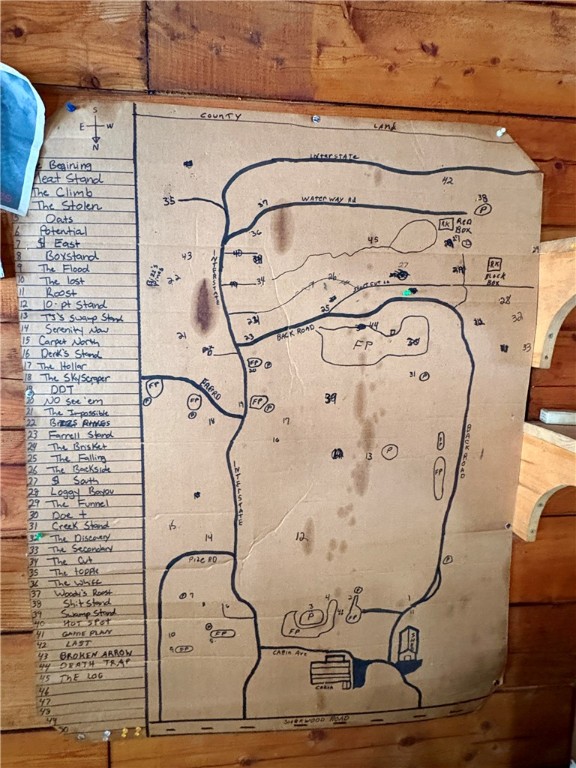 S
E W
N
Begining
Meat Stand
The Climb
The Stolen
Oats
6 Potential
7 $ East
8 Boxstand
9 The Flood
10 The lost
11 Roost
12 10-pt Stand
13 TJ's Swamp Stand
14 Serenity Now
15 Carpet North
16 Derik's Stand
17 The Hollar
18 The SkyScraper
19 DDT
20 NO see 'em
21 The Impossible
23 Farrell Stand
24 The Brisket
25 The Falling
26 The Backside
27 $ South
28 Loggy Bayou
29 The Funnel
30 Doe +
31 Creek Stand
32 The Discovery
33 The Secondary
34 The Cut
35 The topple
36 The Whiff
37 Woody's Roost
38 Shit Stand
39 Swamp Stand
40 HOT SPOT
41 GAME PLAN
42 LAST
43 BROKEN ARROW
44 DEATH TRAP
45 THE LOG
46
47
48
49
50
COUNTY LAND
INTERSTATE
42
35
37 WATER WAY Rd
38
P
36
RX RED BOX
21
43
40
45
29
INTERSTATE
34
26
27
RX FLOOR BOX
22
25
28
24
32
21
23
BACK ROAD
44
FP
30
33
20
FP
31 P
FP
P
FP
FP
P
39
18
19
17
16
BACK ROAD
13 P
INTERSTATE
15
14
12
PIZE RD
7
8
6
4
3
P
FP
2
FP
11
1
10
FP
5
9 FP
CABIN Ave
CABIN
SHERWOOD ROAD